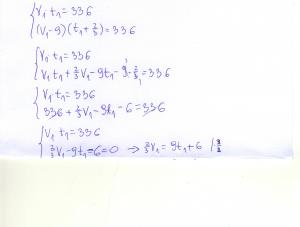 V₁ t₁ = 336
(V₁ - 9)(t₁ + 2/3) = 336
V₁ t₁ = 336
V₁ t₁ + 2/3 V₁ - 9t₁ - 9 · 2/3 = 336
V₁ t₁ = 336
336 + 2/3 V₁ - 9t₁ - 6 = 336
V₁ t₁ = 336
2/3 V₁ - 9t₁ - 6 = 0 → 2/3 V₁ = 9t₁ + 6 | · 3/2